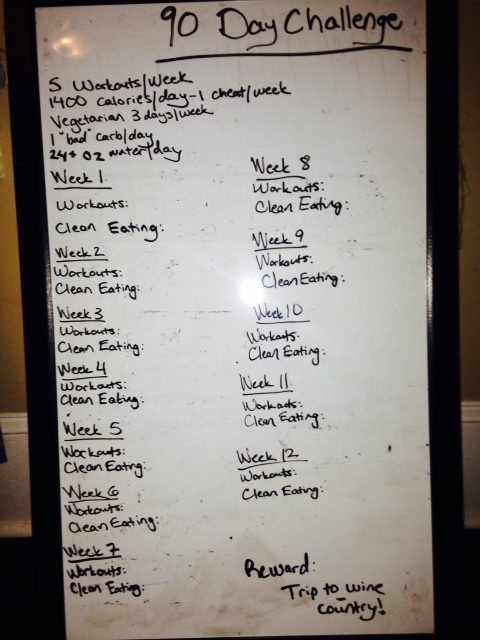 90 Day Challenge
5 Workouts/Week
1400 calories/day - 1 cheat/week
Vegetarian 3 days/week
1 "bad" carb/day
24+ oz water/day
Week 1
Workouts:
Clean Eating:
Week 2
Workouts:
Clean Eating:
Week 3
Workouts:
Clean Eating:
Week 4
Workouts:
Clean Eating:
Week 5
Workouts:
Clean Eating:
Week 6
Workouts:
Clean Eating:
Week 7
Workouts:
Clean Eating:
Week 8
Workouts:
Clean Eating:
Week 9
Workouts:
Clean Eating:
Week 10
Workouts:
Clean Eating:
Week 11
Workouts:
Clean Eating:
Week 12
Workouts:
Clean Eating:
Reward:
Trip to wine
country!